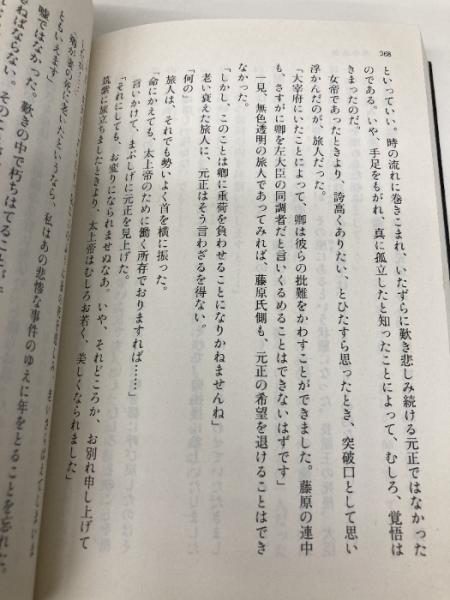 268
といっていい。時の流れに巻きこまれ、いたずらに歎き悲しみ続ける元正ではなかった
のである。いや、手足をもがれ、真に孤立したと知ったことによって、むしろ、覚悟は
きまったのだ。
女帝であったときより、誇高くありたい、とひたすら思ったとき、突破口として思い
浮かんだのが、旅人だった。
「大宰府にいたことによって、卿は彼らの批難をかわすことができました。藤原の連中
も、さすがに卿を左大臣の同調者だと言いくるめることはできないはずです」
一見、無色透明の旅人であってみれば、藤原氏側も、元正の希望を退けることはでき
なかった。
「しかし、このことは卿に重荷を負わせることになりかねませんね」
老い衰えた旅人に、元正はそう言わざるを得ない。
「何の」
旅人は、それでも勢いよく首を横に振った。
「命にかえても、太上帝のために働く所存でおりますれば……」
言いかけて、まぶしげに元正を見上げた。
「それにしても、お変りになられませぬなあ。いや、それどころか、お別れ申し上げて
筑紫に旅立ちましたときより、太上帝はむしろお若く、美しくなられました」
といえます」
「私が妻の死に老いたというなら、私はあの悲惨な事件のゆえに年をとることを忘れた
嘘ではなかった。歎きの中で朽ちはてること
ねばならない。そのた